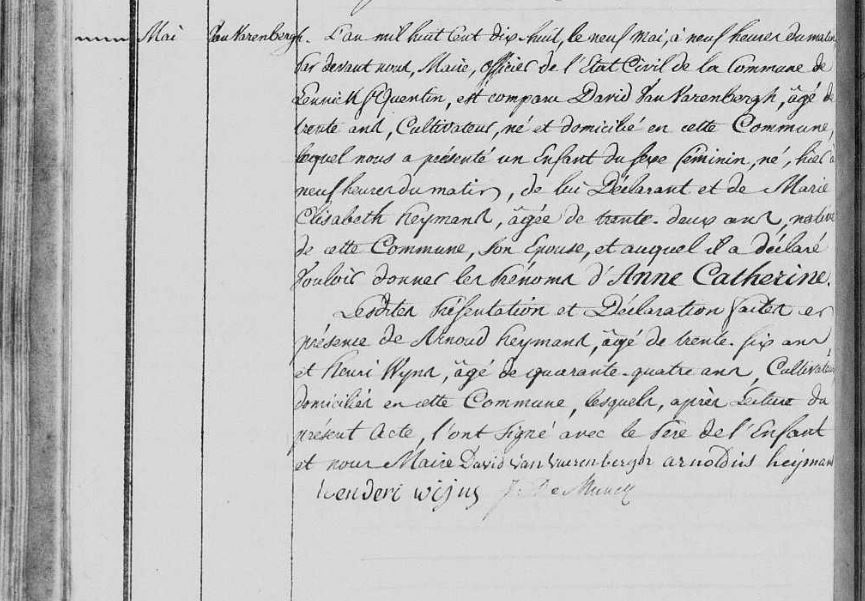 Mai Van Varenbergh. L'an mil huit Cent dix huit, le neuf Mai, à neuf heures du matin
Par devant nous, Maire, officier de l'Etat Civil de la Commune de
Lennick St Quentin, est comparu David Van Varenbergh, âgé de
trente ans, Cultivateur, né et domicilié en cette Commune,
lequel nous a présenté un Enfant du sexe féminin, né, hier à
neuf heures du matin, de lui Déclarant et de Marie
Elisabeth heymans, âgée de trente-deux ans, native
de cette Commune, son Epouse, et auquel il a déclaré
Vouloir donner les Prénoms d'Anne Catherine.
Lesdites Présentation et Déclaration faites en
présence de Arnoud heymans, âgé de trente-six ans
et henri Wyns, âgé de quarante-quatre ans, Cultivateurs
domiciliés en cette Commune, lesquels, après Lecture du
présent Acte, l'ont signé avec le Père de l'Enfant
et nous Maire David van vaerenbergh arnoldus heymans
henderi wijns J. De Munck